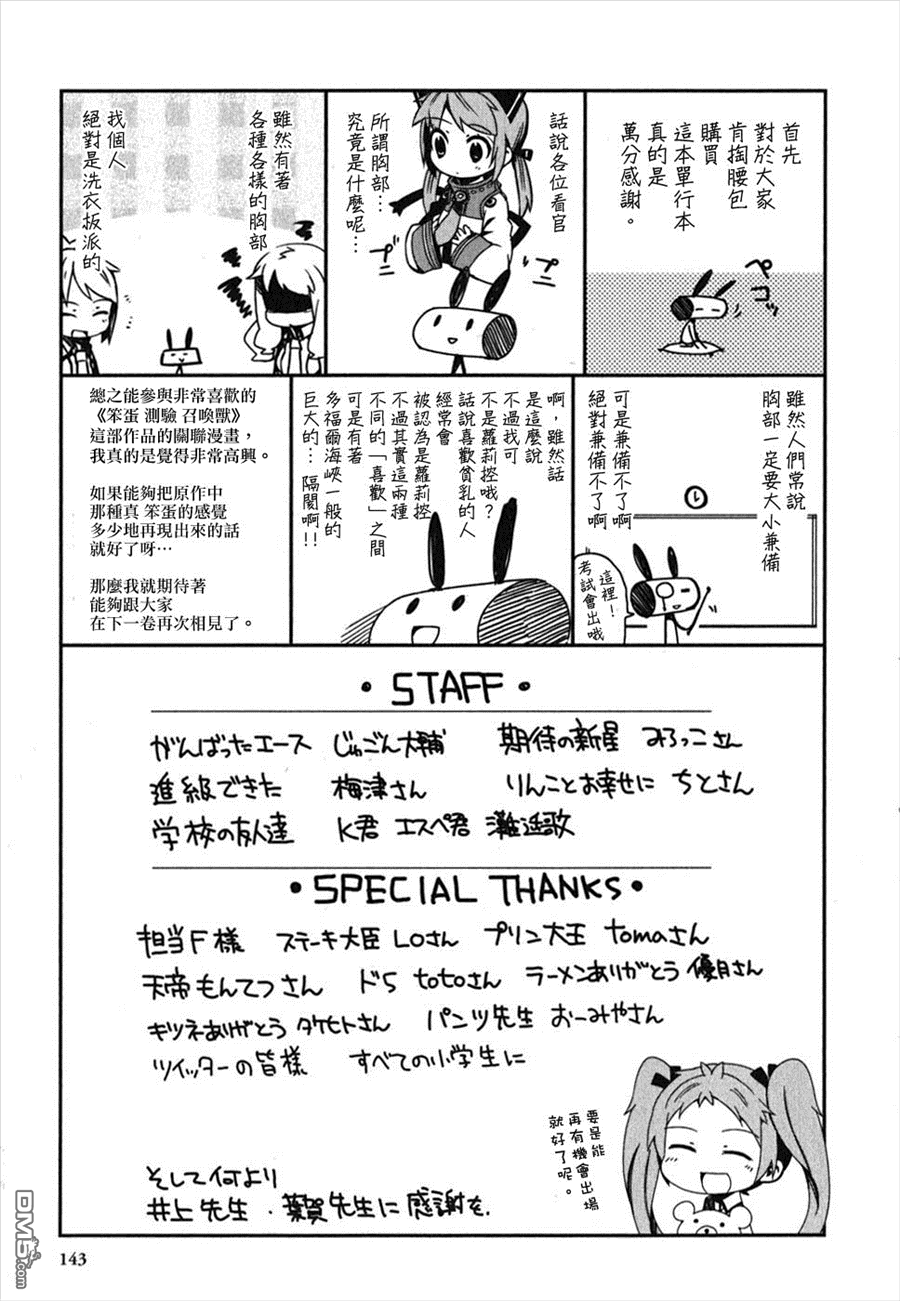 首先
對於大家
肯掏腰包
購買
這本單行本
真的是
萬分感謝。
ペコ
話說各位看官
所謂胸部…
究竟是什麼呢…
プニ
プニ
雖然有著
各種各樣的胸部
我個人
絕對是洗衣板派的
雖然人們常說
胸部一定要大小兼備
可是兼備不了啊
絕對兼備不了啊
這裡！
考試會出哦
啊，雖然話
是這麼說
不過我可
不是蘿莉控哦？
話說喜歡貧乳的人
經常會
被認為是蘿莉控
不過其實這兩種
不同的「喜歡」之間
可是有著
多福爾海峽一般的
巨大的… 隔閡啊!!
總之能參與非常喜歡的
《笨蛋 測驗 召喚獸》
這部作品的關聯漫畫，
我真的是覺得非常高興。
如果能夠把原作中
那種真 笨蛋的感覺
多少地再現出來的話
就好了呀…
那麼我就期待著
能夠跟大家
在下一卷再次相見了。
・STAFF・
がんばったエース じゅごん大輔 期待の新星 みろっこさん
進級できた 梅津さん りんことお幸せに ちとさん
学校の友人達 K君 エスペ君 灘遥歌
・SPECIAL THANKS・
担当F様 ステーキ大臣 Loさん プリン大王 tomaさん
天帝もんてつさん ド5 totoさん ラーメンありがとう 優月さん
キツネありがとう タケヒトさん パンツ先生 おーみやさん
ツイッターの皆様 すべての小学生に
要是能
再有機會出場
就好了呢。
そして何より
井上先生・葉賀先生に感謝を.
143
DM5.com